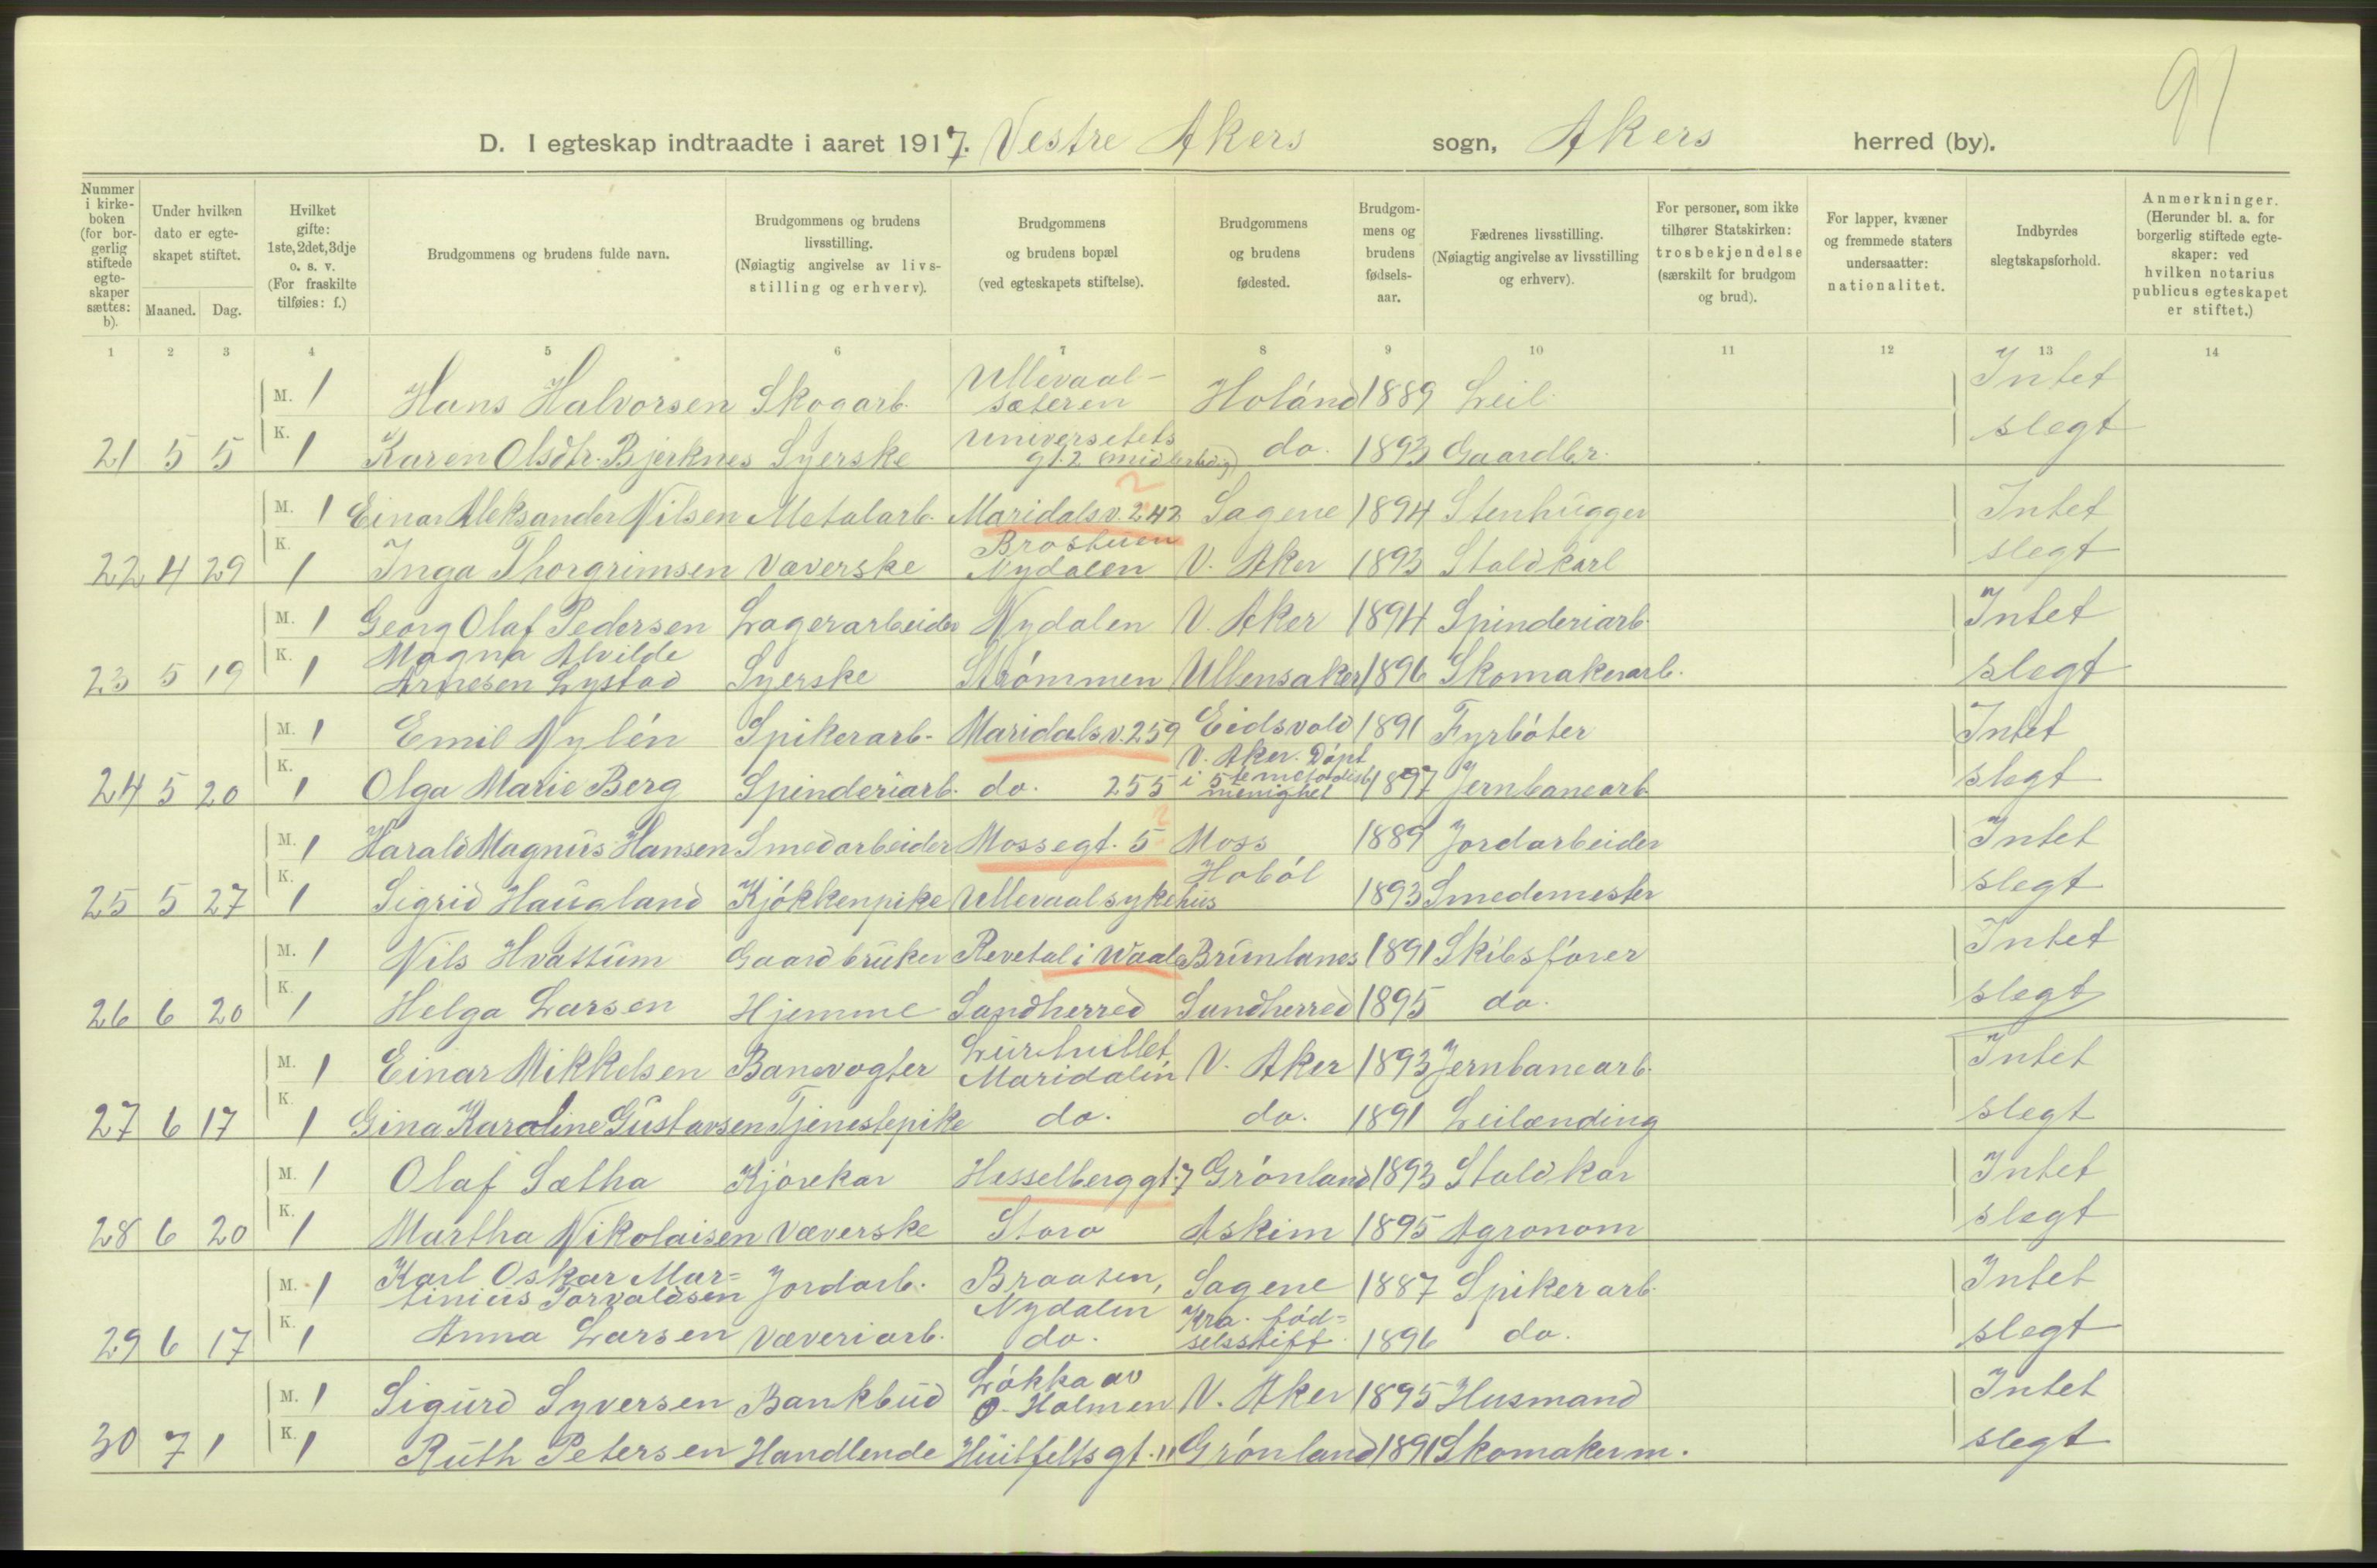 91
D. I egteskap indtraadte i aaret 1917. Vestre Akers sogn, Akers herred (by).
Nummer i kirkeboken (for borgerlig stiftede egteskaper sættes: b).
Under hvilken dato er egteskapet stiftet.
Maaned. Dag.
Hvilket gifte: 1ste, 2det, 3dje o. s. v. (For fraskilte tilføies: f.)
Brudgommens og brudens fulde navn.
Brudgommens og brudens livsstilling. (Nøiagtig angivelse av livsstilling og erhverv).
Brudgommens og brudens bopæl (ved egteskapets stiftelse).
Brudgommens og brudens fødested.
Brudgommens og brudens fødselsaar.
Fædrenes livsstilling. (Nøiagtig angivelse av livsstilling og erhverv).
For personer, som ikke tilhører Statskirken: trosbekjendelse (særskilt for brudgom og brud).
For lapper, kvæner og fremmede staters undersaatter: nationalitet.
Indbyrdes slegtskapsforhold.
Anmerkninger. (Herunder bl. a. for borgerlig stiftede egteskaper: ved hvilken notarius publicus egteskapet er stiftet.)
1 2 3 4 5 6 7 8 9 10 11 12 13 14
M. 1 Hans Halvorsen Skogarb. Ullevaal-sæteren Høland 1889 Leil. Intet
21 5 5 K. 1 Karen Olsdtr. Bjerknes Syerske Universitets gt. 2 (midlertidig) do. 1893 Gaardbr. slegt
M. 1 Einar Aleksander Nilsen Metalarb. Maridalsv. 242 Sagene 1894 Stenhugger Intet
22 4 29 K. 1 Inga Thorgrimsen Væverske Brostuen Nydalen V. Aker 1893 Staldkarl slegt
M. 1 Georg Olaf Pedersen Lagerarbeider Nydalen V. Aker 1894 Spinderiarb. Intet
23 5 19 K. 1 Magna Alvilde Arnesen Lystad Syerske Strømmen Ullensaker 1896 Skomakerarb. slegt
M. 1 Emil Nylén Spikerarb. Maridalsv. 259 Eidsvold 1891 Fyrbøter Intet
24 5 20 K. 1 Olga Marie Berg Spinderiarb. do. 255 V. Aker. Døpt i 5te metodistmenighet 1897 Jernbanearb. slegt
M. 1 Harald Magnus Hansen Smedarbeider Mossegt. 5 Moss 1889 Jordarbeider Intet
25 5 27 K. 1 Sigrid Haugland Kjøkkenpike Ullevaal sykehus Hobøl 1893 Smedemester slegt
M. 1 Nils Hvattum Gaardbruker Revetal i Waale Brunlanes 1891 Skibsfører Intet
26 6 20 K. 1 Helga Larsen Hjemme Sandherred Sandherred 1895 do. slegt
M. 1 Einar Mikkelsen Banevogter Lurhullet, Maridalen V. Aker 1893 Jernbanearb. Intet
27 6 17 K. 1 Gina Karoline Gustavsen Tjenestepike do. do. 1891 Leilænding slegt
M. 1 Olaf Sætha Kjørekar Hesselberggt. 7 Grønland 1893 Staldkar Intet
28 6 20 K. 1 Martha Nikolaisen Væverske Storo Askim 1895 Agronom slegt
M. 1 Karl Oskar Martinius Torvaldsen Jordarb. Braaten, Nydalen Sagene 1887 Spikerarb. Intet
29 6 17 K. 1 Anna Larsen Væveriarb. do. Kra. fødselsstift. 1896 do. slegt
M. 1 Sigurd Syversen Bankbud Løkka av Ø. Holmen V. Aker 1895 Husmand Intet
30 7 1 K. 1 Ruth Petersen Handlende Huitfelts gt. 11 Grønland 1891 Skomakerm. slegt